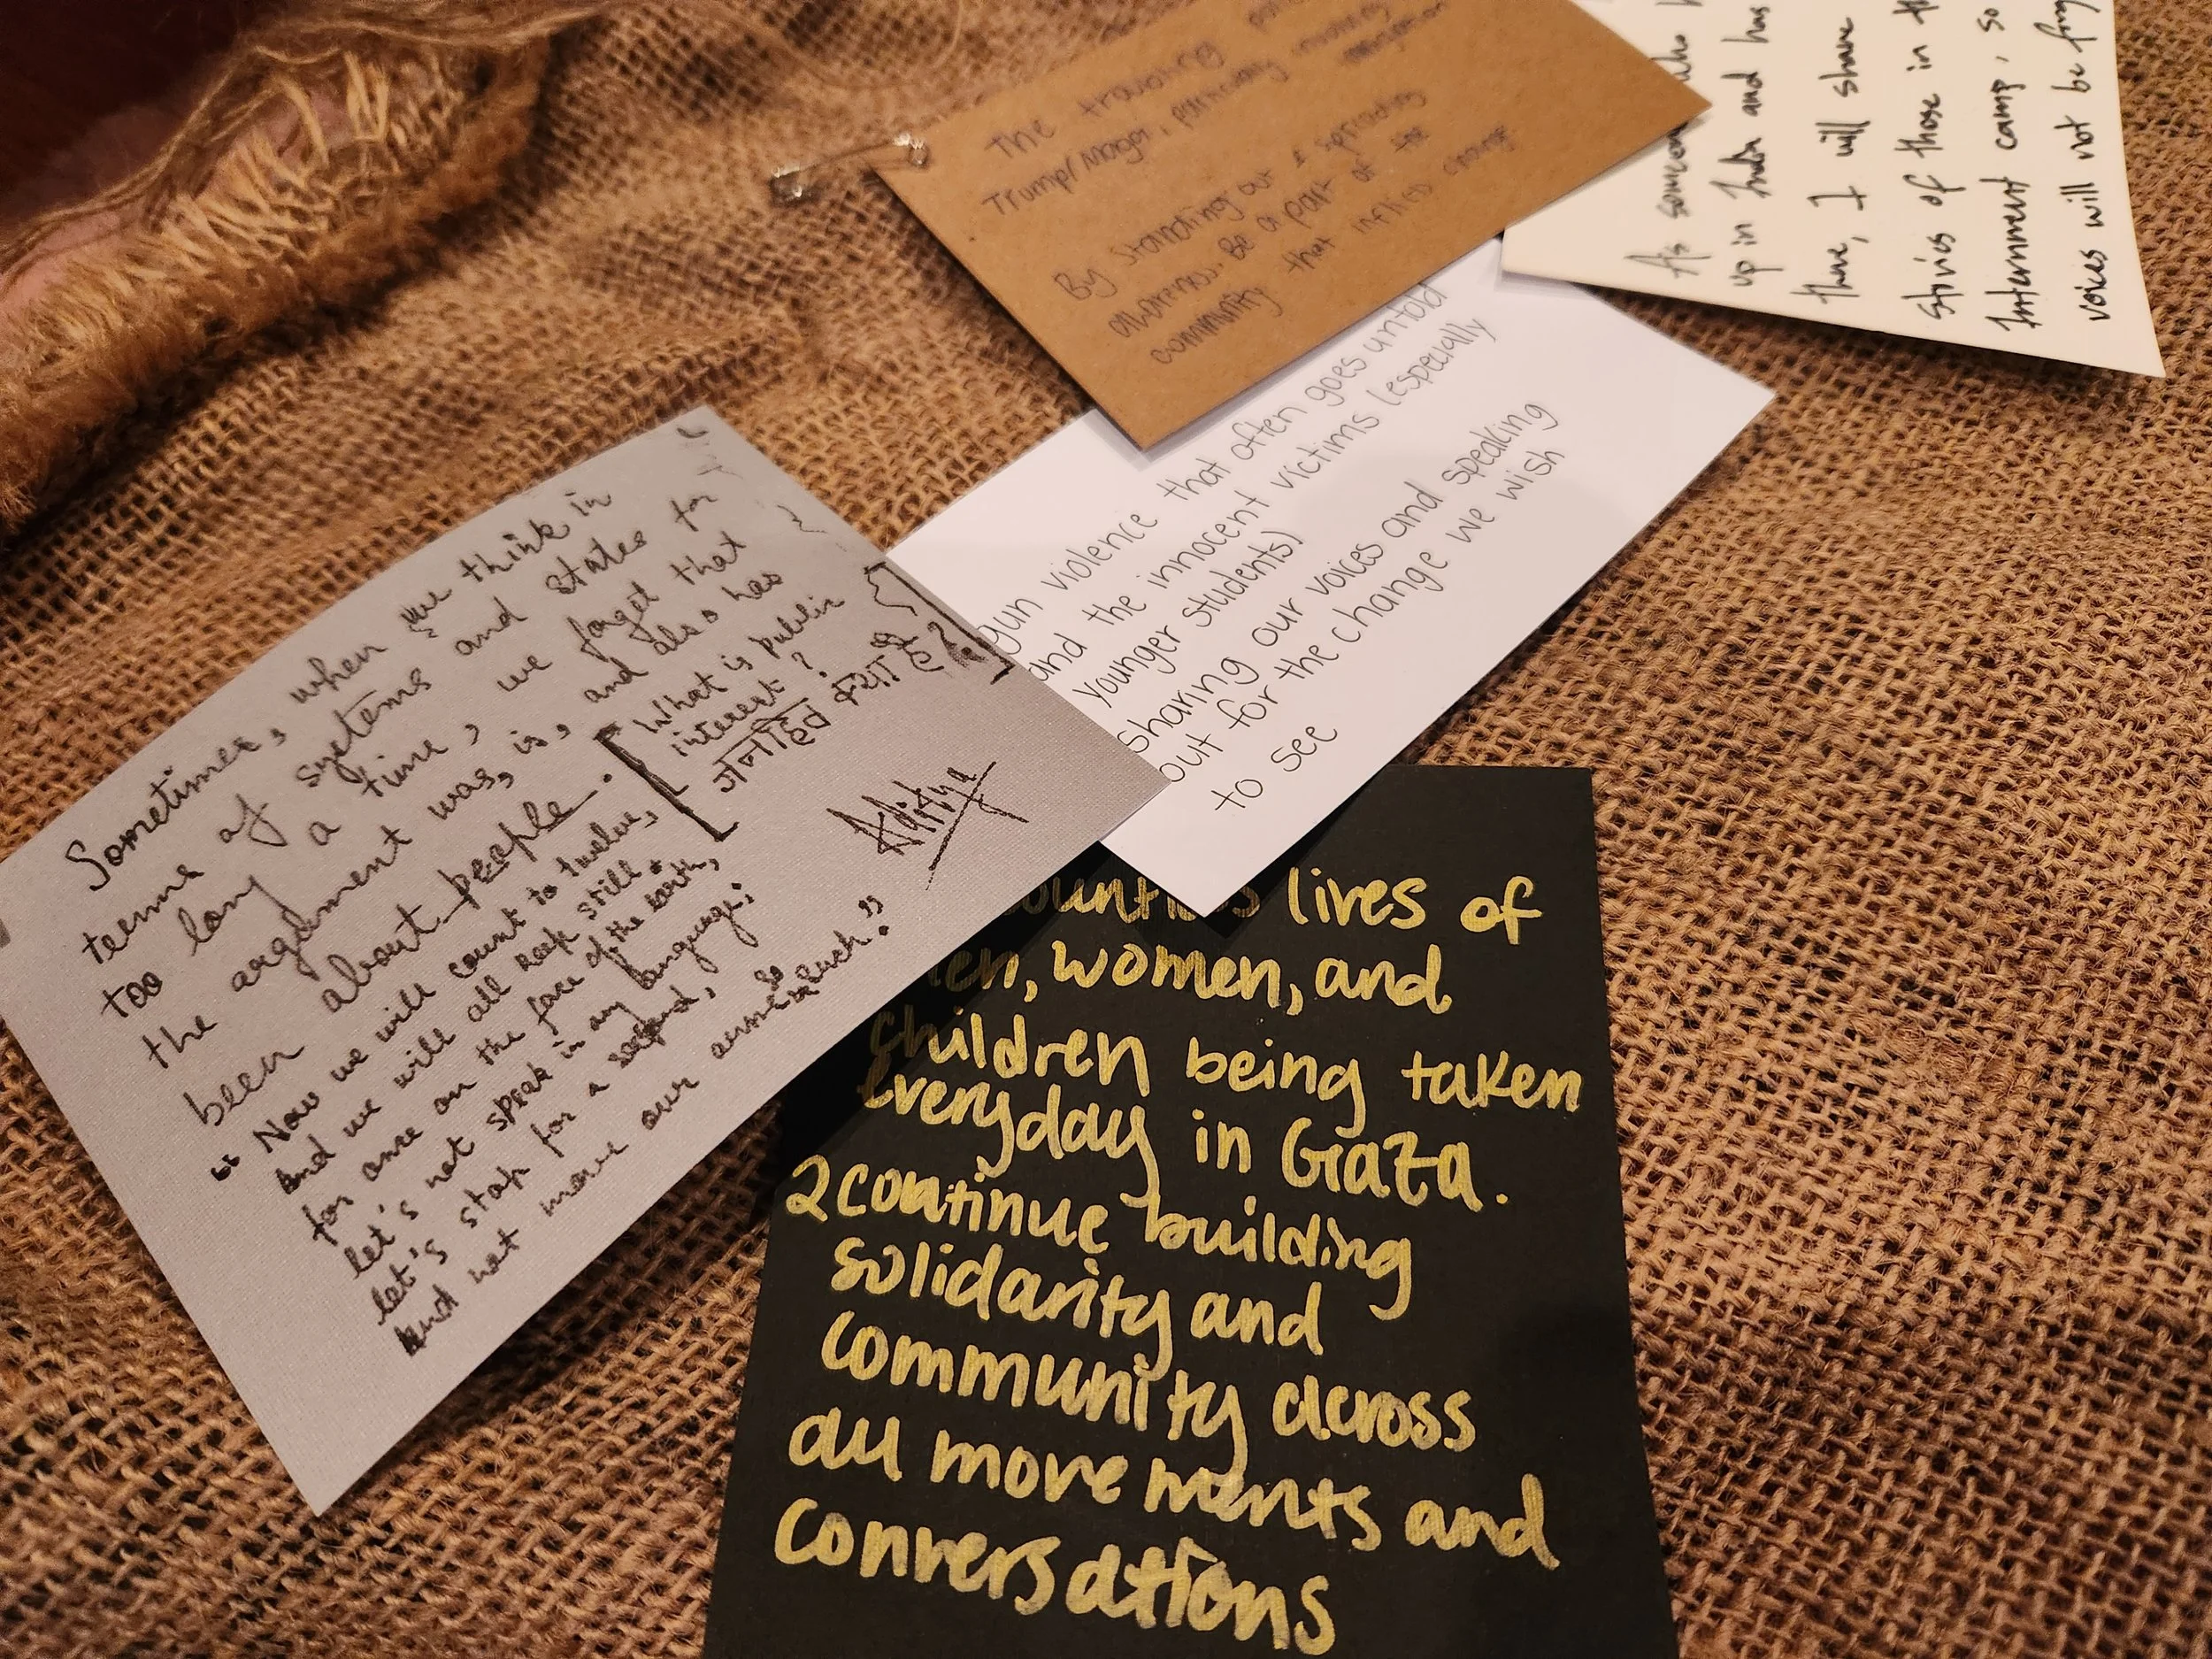 Sometimes, when we think in
terms of systems and states for
too long a time, we forget that
the argument was, is, and also has
been about people.
"Now we will count to twelve,
and we will all keep still.
for once on the face of the earth,
let's not speak in any language;
let's stop for a second,
and not move our arms so much."
What is public
interest?
जनहित क्या है?
Aditya
The
Trump/
By Standing out & spreading
awareness. Be a part of the
community that inflicts change
gun violence that often goes untold
and the innocent victims (especially
younger students)
sharing our voices and speaking
out for the change we wish
to see
As
up in and has
there, I will share
stories of those in
Internment camp, so
voices will not be
lives of
women, and
children being taken
everyday in Gaza.
2 continue building
solidarity and
community across
all movements and
conversations